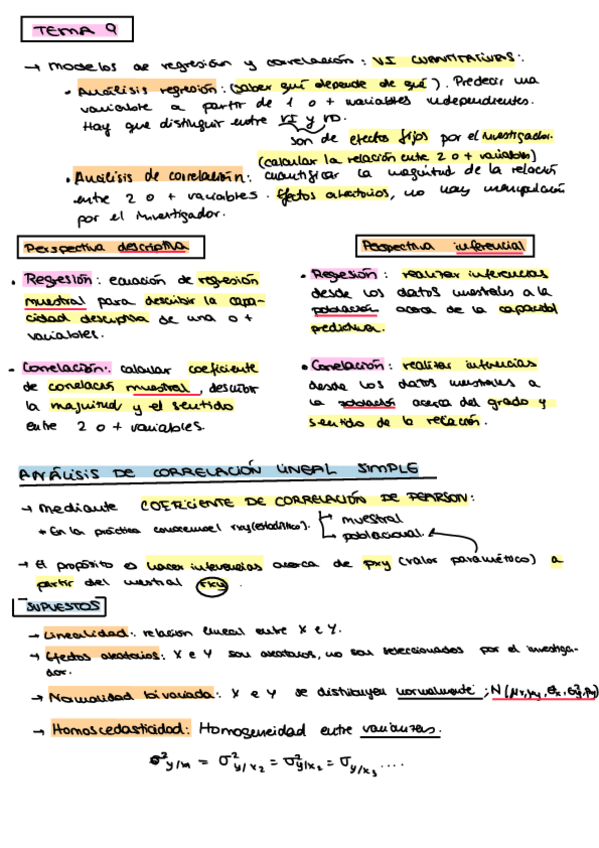 TEMA 9
→ Modelos de regresión y correlación: VI CUANTITATIVAS:
• Análisis regresión: (saber qué depende de qué). Predecir una
variable a partir de 1 o + variables independientes.
Hay que distinguir entre VI y VD.
son de efectos fijos por el investigador.
(calcular la relación entre 2 o + variables)
• Análisis de correlación: cuantificar la magnitud de la relación
entre 2 o + variables. Efectos aleatorios, no hay manipulación
por el investigador.
Perspectiva descriptiva
• Regresión: ecuación de regresión
muestral para describir la capa-
cidad descriptiva de una o +
variables.
• Correlación: calcular coeficiente
de correlación muestral, describir
la magnitud y el sentido
entre 2 o + variables.
Perspectiva inferencial
• Regresión: realizar inferencias
desde los datos muestrales a la
población acerca de la capacidad
predictiva.
• Correlación: realizar inferencias
desde los datos muestrales a
la población acerca del grado y
sentido de la relación.
ANÁLISIS DE CORRELACIÓN LINEAL SIMPLE
→ Mediante COEFICIENTE DE CORRELACIÓN DE PEARSON:
• En la práctica conocemos rxy (estadístico).
muestral
poblacional.
→ El propósito es hacer inferencias acerca de ρxy (valor paramétrico) a
partir del muestral rxy.
SUPUESTOS
→ Linealidad: relación lineal entre X e Y.
→ Efectos aleatorios: X e Y son aleatorios, no son seleccionados por el investiga-
dor.
→ Normalidad bivariada: X e Y se distribuyen normalmente; N(μx, μy, σx, σy, ρ)
→ Homoscedasticidad: Homogeneidad entre varianzas.
σ²y/x₁ = σ²y/x₂ = σ²y/x₂ = σy/x₃ ....